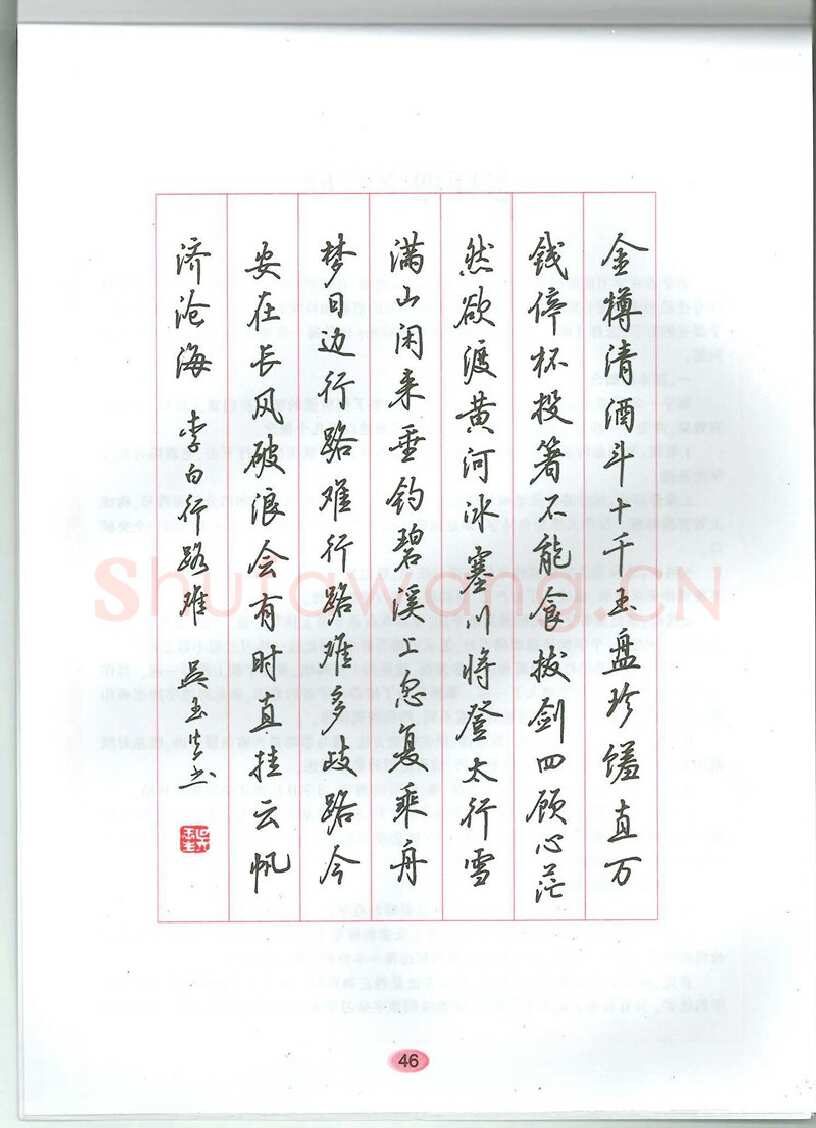 金樽清酒斗十千玉盘珍馐直万
钱停杯投箸不能食拔剑四顾心茫
然欲渡黄河冰塞川将登太行雪
满山闲来垂钓碧溪上忽复乘舟
梦日边行路难行路难多歧路今
安在长风破浪会有时直挂云帆
济沧海 李白行路难 吴玉生书
Shufawang.CN
46